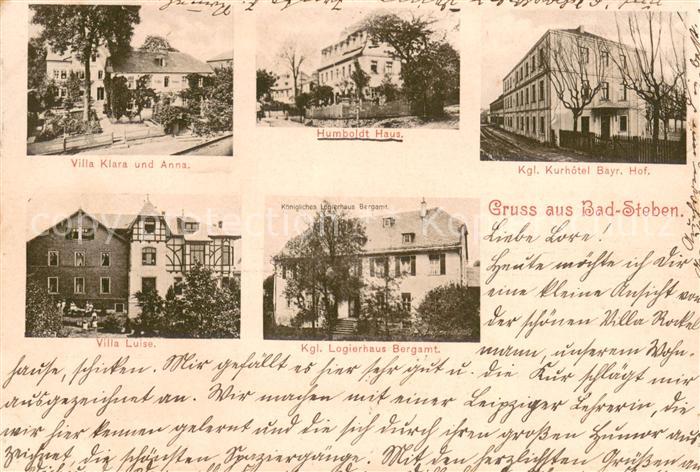 Villa Klara und Anna.
Humboldt Haus.
Kgl. Kurhôtel Bayr. Hof.
Königliches Logierhaus Bergamt.
Villa Luise.
Kgl. Logierhaus Bergamt.
Gruss aus Bad-Steben.
Liebe Lore!
Heute möchte ich Dir
eine kleine Ansicht von
der schönen Villa Rocke
mann, unserem Wohn
hause, schicken. Mir gefällt es hier sehr gut u. die Kur schlägt mir
ausgezeichnet an. Wir machen mit einer Leipziger Lehrerin, die
wir hier kennen gelernt und die sich durch ihren großen Humor aus
zeichnet, die schönsten Spaziergänge. Mit den herzlichsten Grüßen